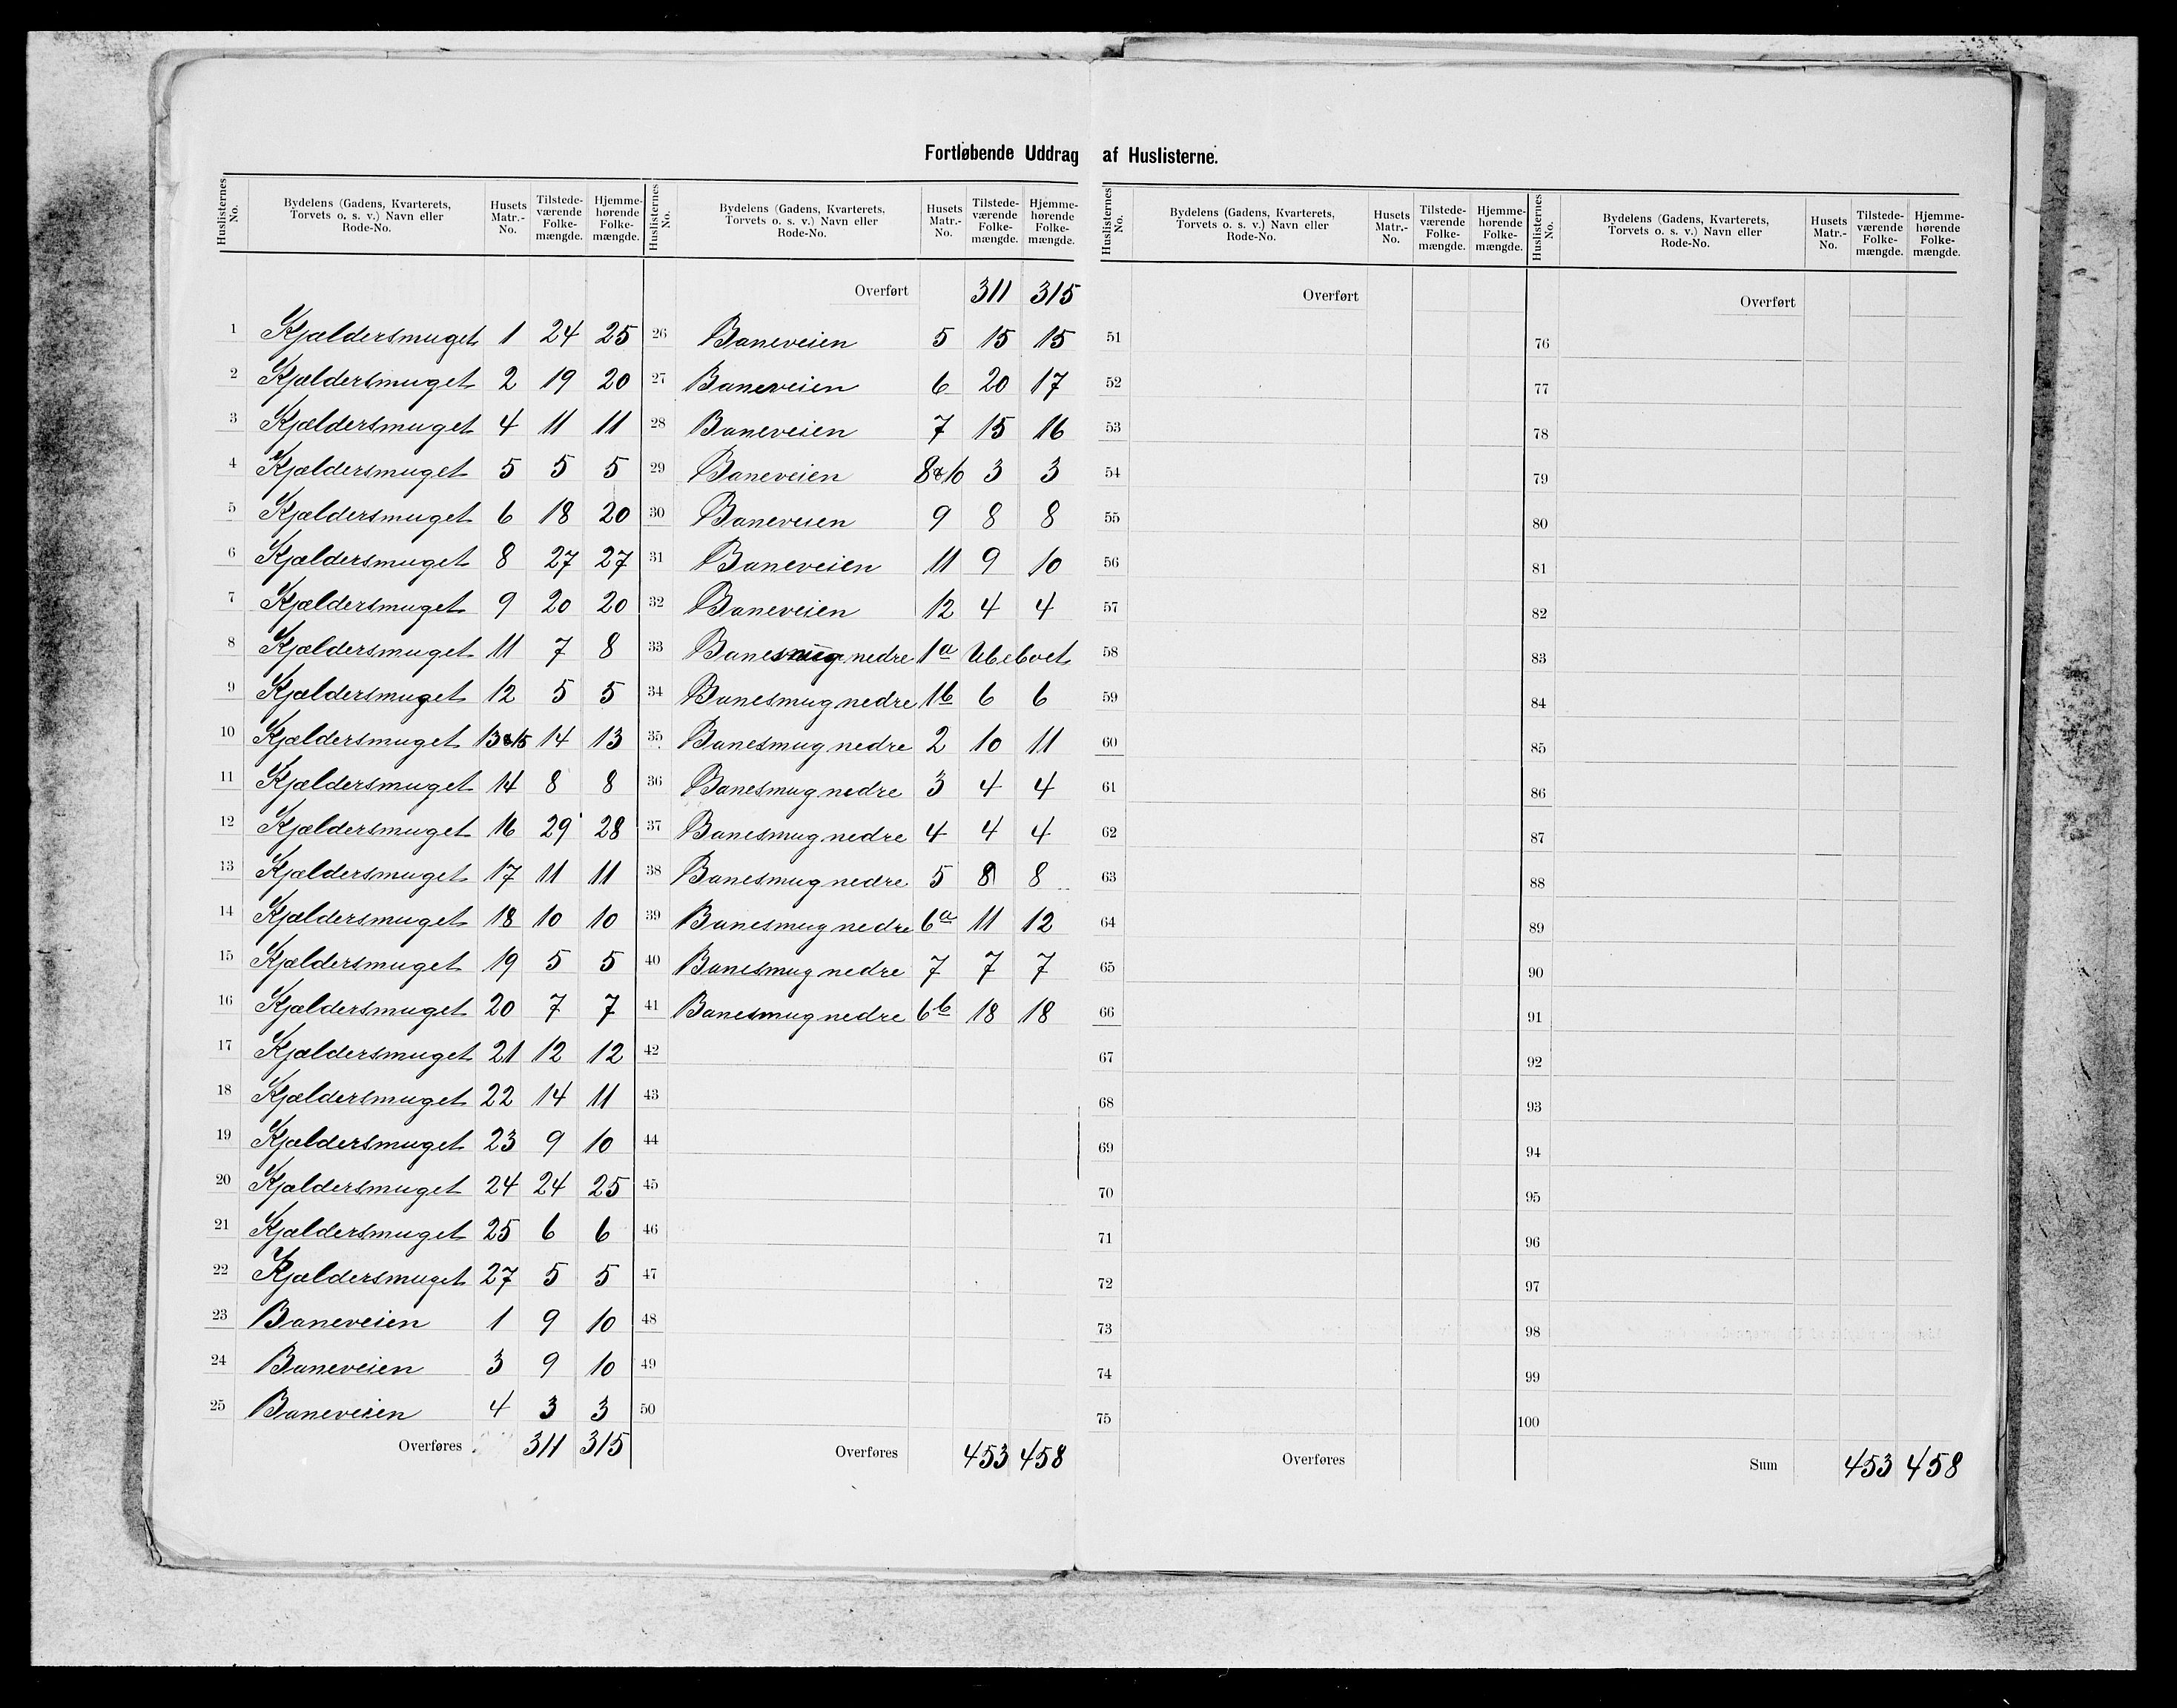 Fortløbende Uddrag af Huslisterne.
Huslisternes No. Bydelens (Gadens, Kvarterets, Torvets o. s. v.) Navn eller Rode-No. Husets Matr.-No. Tilstedeværende Folkemængde. Hjemmehørende Folkemængde.
1 Kjældersmuget 1 24 25
2 Kjældersmuget 2 19 20
3 Kjældersmuget 4 11 11
4 Kjældersmuget 5 5 5
5 Kjældersmuget 6 18 20
6 Kjældersmuget 8 27 27
7 Kjældersmuget 9 20 20
8 Kjældersmuget 11 7 8
9 Kjældersmuget 12 5 5
10 Kjældersmuget 13&15 14 13
11 Kjældersmuget 14 8 8
12 Kjældersmuget 16 29 28
13 Kjældersmuget 17 11 11
14 Kjældersmuget 18 10 10
15 Kjældersmuget 19 5 5
16 Kjældersmuget 20 7 7
17 Kjældersmuget 21 12 12
18 Kjældersmuget 22 14 11
19 Kjældersmuget 23 9 10
20 Kjældersmuget 24 24 25
21 Kjældersmuget 25 6 6
22 Kjældersmuget 27 5 5
23 Baneveien 1 9 10
24 Baneveien 3 9 10
25 Baneveien 4 3 3
Overføres 311 315
Huslisternes No. Bydelens (Gadens, Kvarterets, Torvets o. s. v.) Navn eller Rode-No. Husets Matr.-No. Tilstedeværende Folkemængde. Hjemmehørende Folkemængde.
Overført 311 315
26 Baneveien 5 15 15
27 Baneveien 6 20 17
28 Baneveien 7 15 16
29 Baneveien 8&10 3 3
30 Baneveien 9 8 8
31 Baneveien 11 9 10
32 Baneveien 12 4 4
33 Banesmug nedre 1a Ubeboet
34 Banesmug nedre 1b 6 6
35 Banesmug nedre 2 10 11
36 Banesmug nedre 3 4 4
37 Banesmug nedre 4 4 4
38 Banesmug nedre 5 8 8
39 Banesmug nedre 6a 11 12
40 Banesmug nedre 7 7 7
41 Banesmug nedre 6b 18 18
42
43
44
45
46
47
48
49
50
Overføres 453 458
Huslisternes No. Bydelens (Gadens, Kvarterets, Torvets o. s. v.) Navn eller Rode-No. Husets Matr.-No. Tilstedeværende Folkemængde. Hjemmehørende Folkemængde.
Overført
51
52
53
54
55
56
57
58
59
60
61
62
63
64
65
66
67
68
69
70
71
72
73
74
75
Overføres
Huslisternes No. Bydelens (Gadens, Kvarterets, Torvets o. s. v.) Navn eller Rode-No. Husets Matr.-No. Tilstedeværende Folkemængde. Hjemmehørende Folkemængde.
Overført
76
77
78
79
80
81
82
83
84
85
86
87
88
89
90
91
92
93
94
95
96
97
98
99
100
Sum 453 458